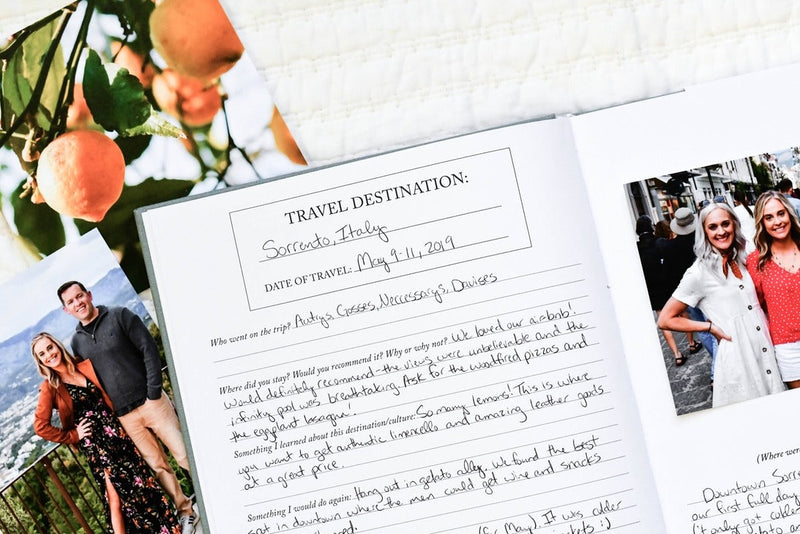 TRAVEL DESTINATION:
Sorrento, Italy
DATE OF TRAVEL: May 9-11, 2019
Who went on the trip? Autrys, Gosses, Neccessarys, Davises
Where did you stay? Would you recommend it? Why or why not? We loved our airbnb!
Would definitely recommend - the views were unbelievable and the
infinity pool was breathtaking. Ask for the woodfired pizzas and
the eggplant lasagna!
Something I learned about this destination/culture: So many lemons! This is where
you want to get authentic limencello and amazing leather goods
at a great price.
Something I would do again: Hang out in gelato alley. We found the best
spot in downtown where the men could get wine and snacks
(for May). It was older
:)
(Where were
Downtown Sorre
our first full day
(it only got